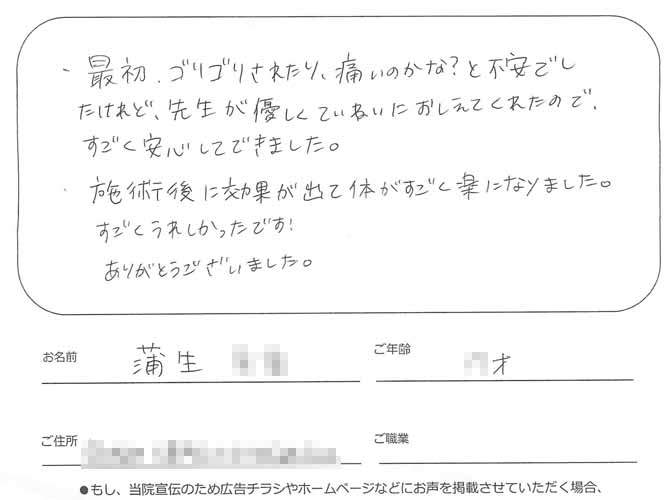 ・最初、ゴリゴリされたり、痛いのかな?と不安でし
たけれど、先生が優しくていねいにおしえてくれたので、
すごく安心してできました。
・施術後に効果が出て体がすごく楽になりました。
すごくうれしかったです!
ありがとうございました。
お名前 蒲生
ご年齢 才
ご住所
ご職業
●もし、当院宣伝のため広告チラシやホームページなどにお声を掲載させていただく場合、